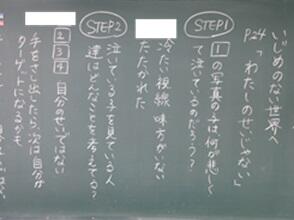 いじめのない世界へ
P24「わたしのせいじゃない」
STEP1
1の写真の子は何が悲しく
て泣いているのだろう?
冷たい視線 味方がいない
たたかれた
STEP2
泣いている子を見ている人
達はどんなことを考えてる?
2 3 4 自分のせいではない
手をさし出したら次は自分が
ターゲットになるかも